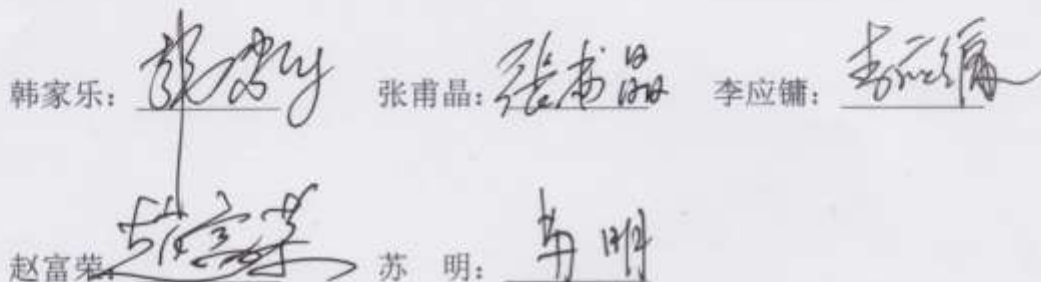 韩家乐： 韩家乐 张甫晶： 張甫晶 李应镛： 李应镛
赵富荣： 赵富荣 苏 明： 苏明